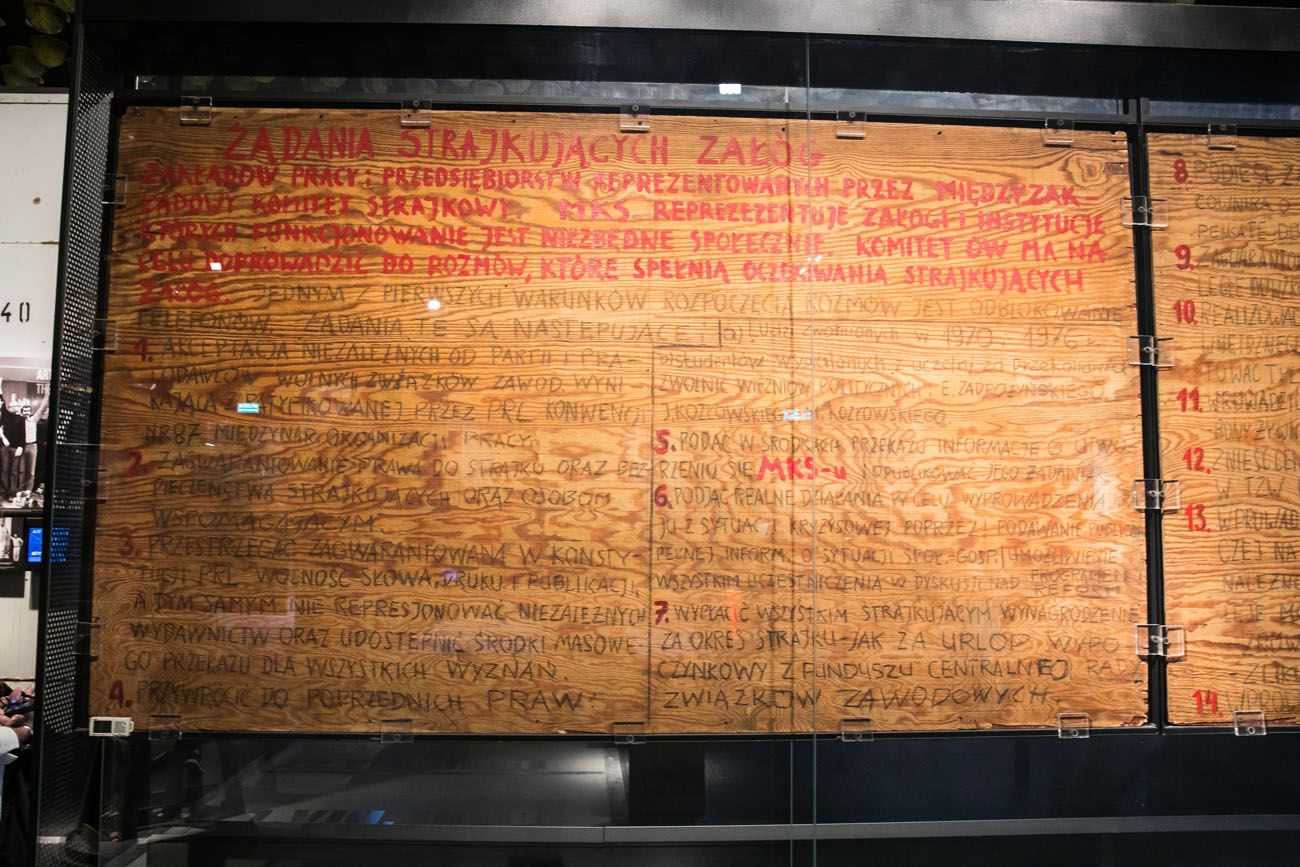 ŻĄDANIA STRAJKUJĄCYCH ZAŁÓG
ZAKŁADÓW PRACY i PRZEDSIĘBIORSTW REPREZENTOWANYCH PRZEZ MIĘDZYZAK-
ŁADOWY KOMITET STRAJKOWY. MKS REPREZEZENTUJE ZAŁOGI I INSTYTUCJE
KTÓRYCH FUNKCJONOWANIE JEST NIEZBĘDNE SPOŁECZNIE. KOMITET ÓW MA NA
CELU DOPROWADZIĆ DO ROZMÓW, KTÓRE SPEŁNIĄ OCZEKIWANIA STRAJKUJĄCYCH
ZAŁÓG. JEDNYM Z PIERWSZYCH WARUNKÓW ROZPOCZĘCIA ROZMÓW JEST ODBLOKOWANIE
TELEFONÓW. ŻĄDANIA TE SĄ NASTĘPUJĄCE:
1. AKCEPTACJA NIEZALEŻNYCH OD PARTII I PRA-
CODAWCÓW WOLNYCH ZWIĄZKÓW ZAWOD. WYNI
KAJĄCA Z RATYFIKOWANEJ PRZEZ PRL KONWENCJI
NR 87 MIĘDZYNAR. ORGANIZACJI PRACY.
2. ZAGWARANTOWANIE PRAWA DO STRAJKU ORAZ BEZ-
PIECZEŃSTWA STRAJKUJĄCYCH ORAZ OSOBOM
WSPOMAGAJĄCYM.
3. PRZESTRZEGAĆ ZAGWARANTOWANĄ W KONSTY-
TUCJI PRL WOLNOŚĆ SŁOWA, DRUKU I PUBLIKACJI,
A TYM SAMYM NIE REPRESJONOWAĆ NIEZALEŻNYCH
WYDAWNICTW ORAZ UDOSTĘPNIĆ ŚRODKI MASOWE-
GO PRZEKAZU DLA WSZYSTKICH WYZNAŃ.
4. PRZYWRÓCIĆ DO POPRZEDNICH PRAW:
a) Ludzi zwolnionych w 1970 i 1976
b) studentów wydalonych z uczelni za przekonania
ZWOLNIĆ WIĘŹNIÓW POLITYCZNYCH E. ZADROŻYŃSKIEGO,
J. KOZŁOWSKIEGO, M. KOZŁOWSKIEGO.
5. PODAĆ W ŚRODKACH PRZEKAZU INFORMACJE O UTWO-
RZENIU SIĘ MKS-u I OPUBLIKOWAĆ JEGO ŻĄDANIA
6. PODJĄĆ REALNE DZIAŁANIA W CELU WYPROWADZENIA KRA
JU Z SYTUACJI KRYZYSOWEJ POPRZEZ: PODAWANIE PUBLICZN
PEŁNEJ INFORM. O SYTUACJI SPOŁ-GOSP. UMOŻLIWIENIE
WSZYSTKIM UCZESTNICZENIA W DYSKUSJI NAD PROGRAMEM
REFORM
7. WYPŁACIĆ WSZYSTKIM STRAJKUJĄCYM WYNAGRODZENIE
ZA OKRES STRAJKU-JAK ZA URLOP WYPO
CZYNKOWY Z FUNDUSZU CENTRALNEJ RADY
ZWIĄZKÓW ZAWODOWYCH.
8 PODIEŚĆ Z
COWNIKA O
PENSATĘ DO
9. ZAGWARANTO
10. REALIZOWAĆ
WNĘTRZNEGO
TOWAĆ TYL
11.
12. ZNIEŚĆ CEN
W TZW
13 WPROWAD
CZEJ NA
NALEŻNO
14.
40